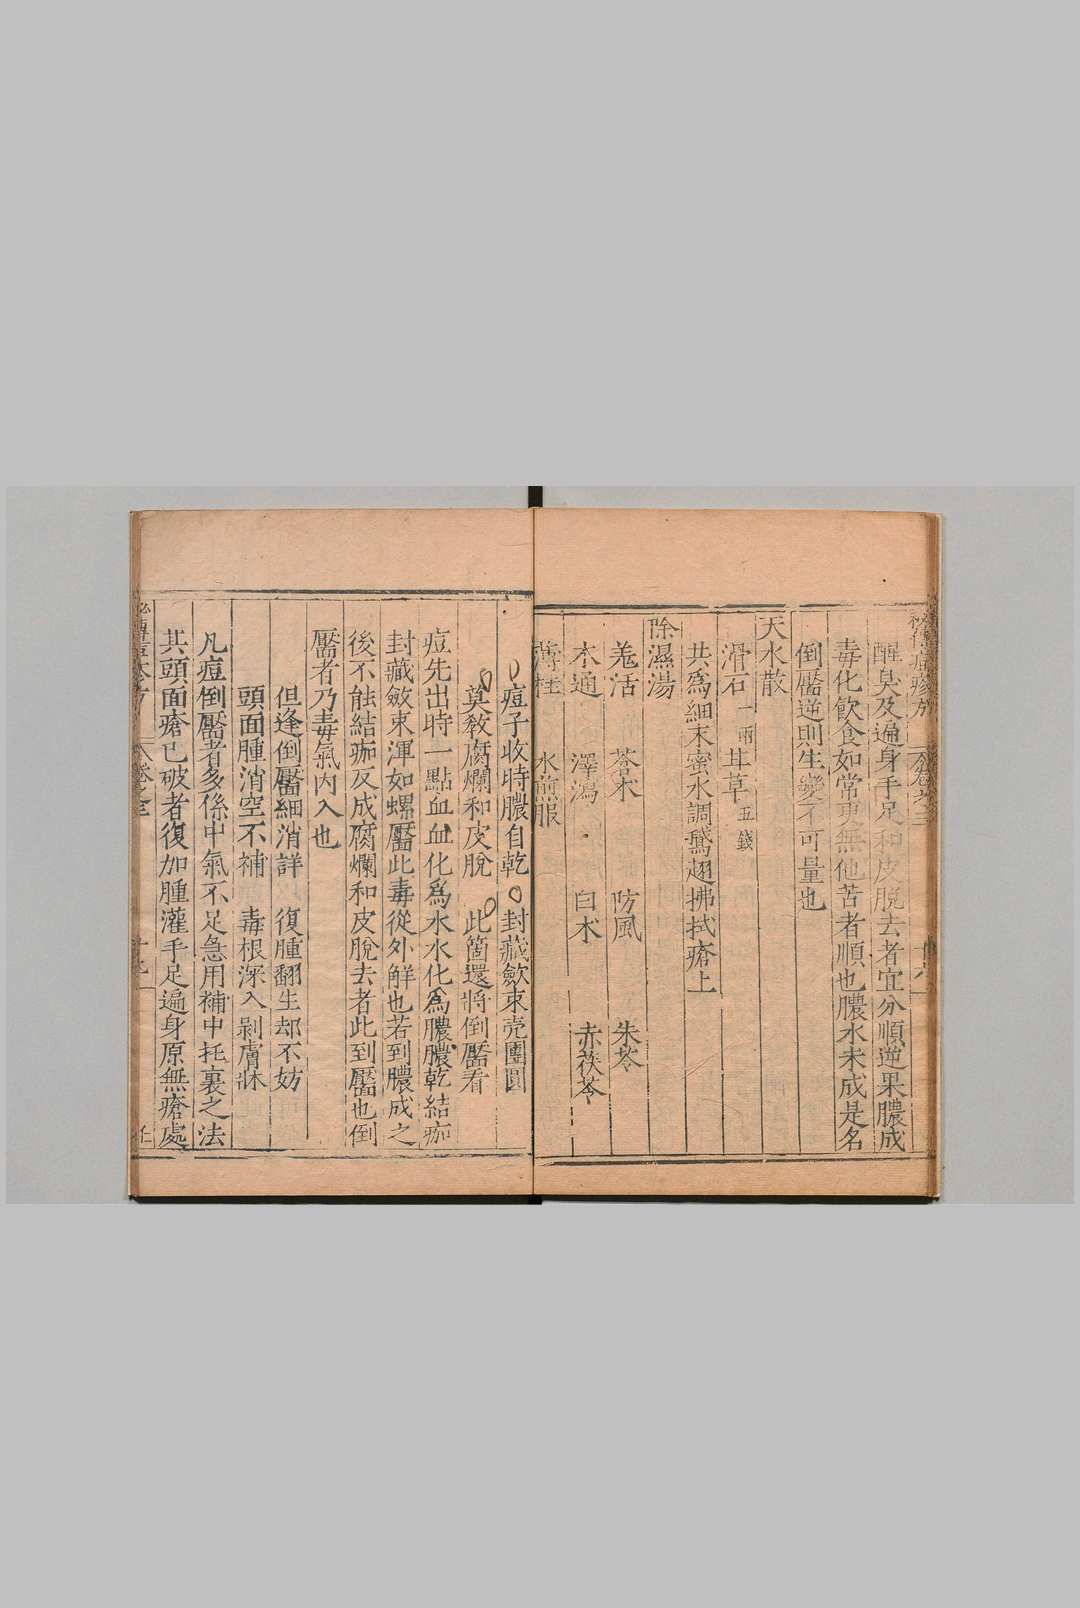 醒臭及遍身手足和皮脫去者宜分順逆果膿成
毒化飲食如常更無他苦者順也膿水未成是名
倒靨逆則生變不可量也
天水散
滑石一兩 甘草五錢
共爲細末蜜水調鵞翅拂拭瘡上
除濕湯
羗活 蒼术 防風 朱苓
木通 澤瀉 白术 赤茯苓
薄桂 水煎服
痘子收時膿自乾 封藏斂束壳團圓
莫敎腐爛和皮脫 此箇還將倒靨看
痘先出時一點血血化爲水水化爲膿膿乾結痂
封藏斂束渾如螺靨此毒從外解也若到膿成之
後不能結痂反成腐爛和皮脫去者此到靨也倒
靨者乃毒氣內入也
但逢倒靨細消詳 復腫翻生却不妨
頭面腫消空不補 毒根深入剝膚牀
凡痘倒靨者多係中氣不足急用補中托裏之法
其頭面瘡已破者復加腫灌手足遍身原無瘡處